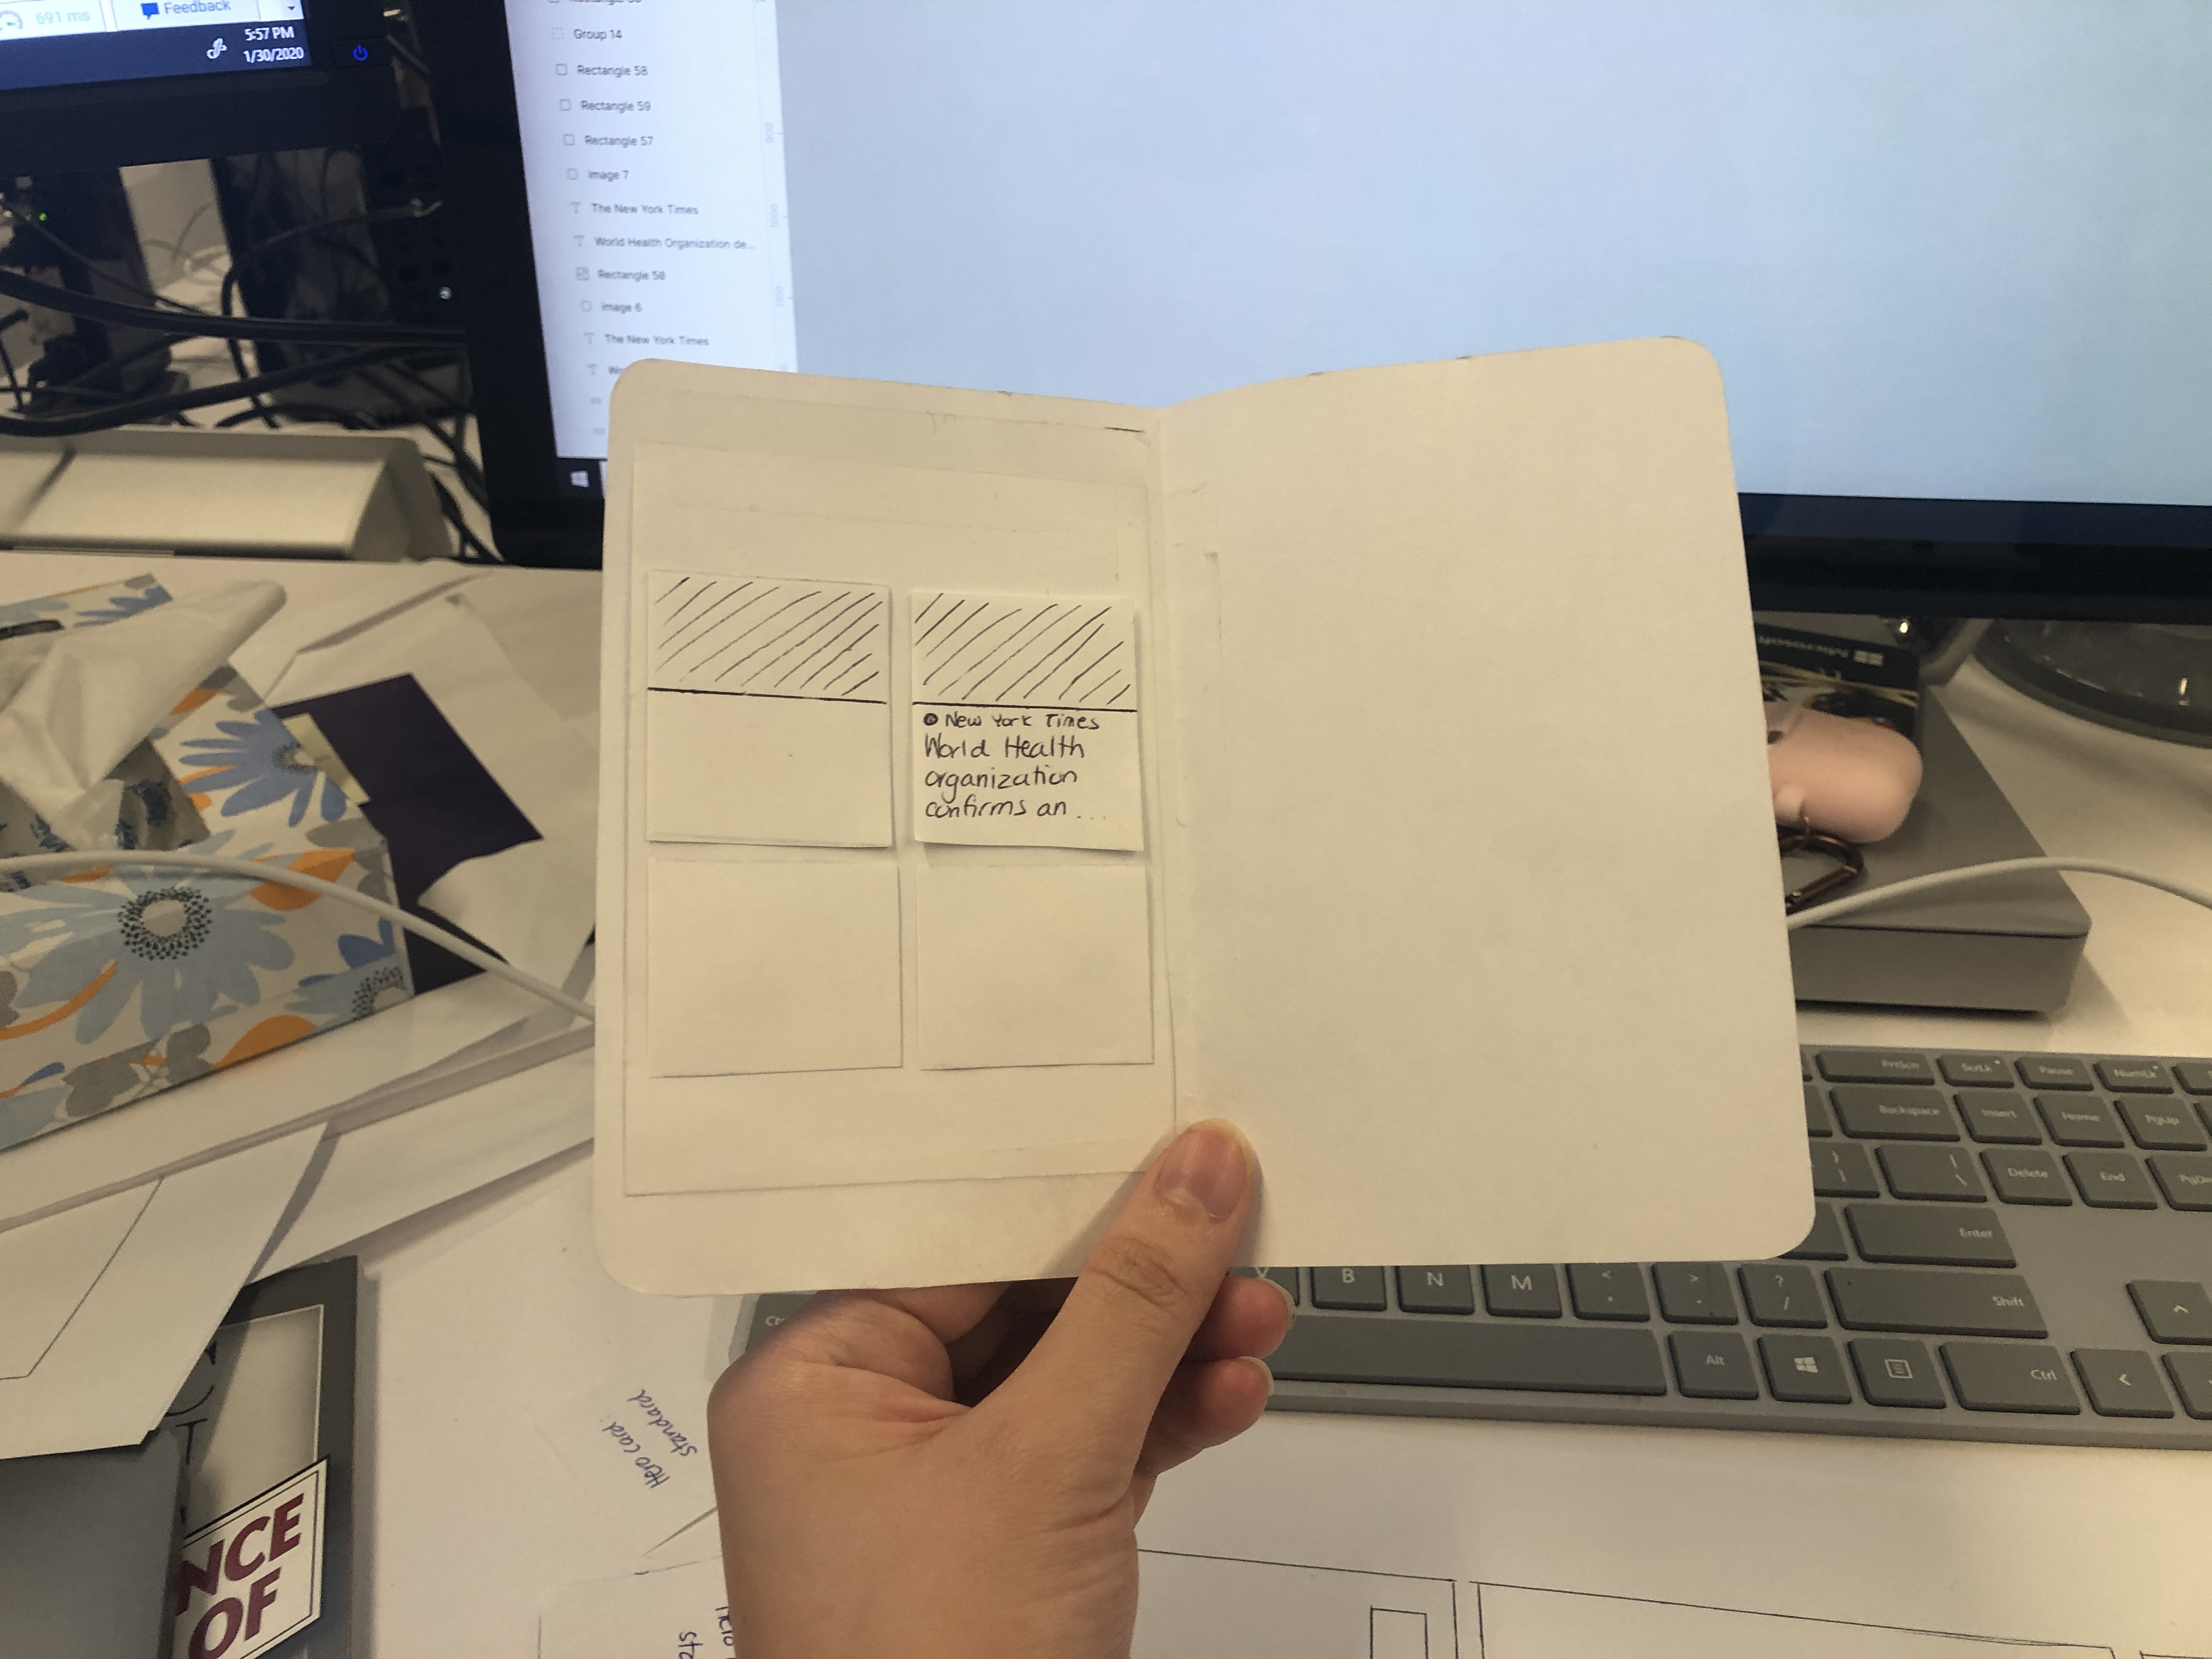 691 ms
Feedback
5:57 PM
1/30/2020
Group 14
Rectangle 58
Rectangle 59
Rectangle 57
Image 7
The New York Times
World Health Organization de...
Rectangle 50
Image 6
The New York Times
New York Times
World Health
organization
confirms an ...
Microsoft
PrtScn
ScrLk
Pause
NumLk
Backspace
Insert
Home
PgUp
Delete
End
Enter
B N M < > ? /
Shift
Alt
Ctrl
Hero card:
standard
NCE
OF